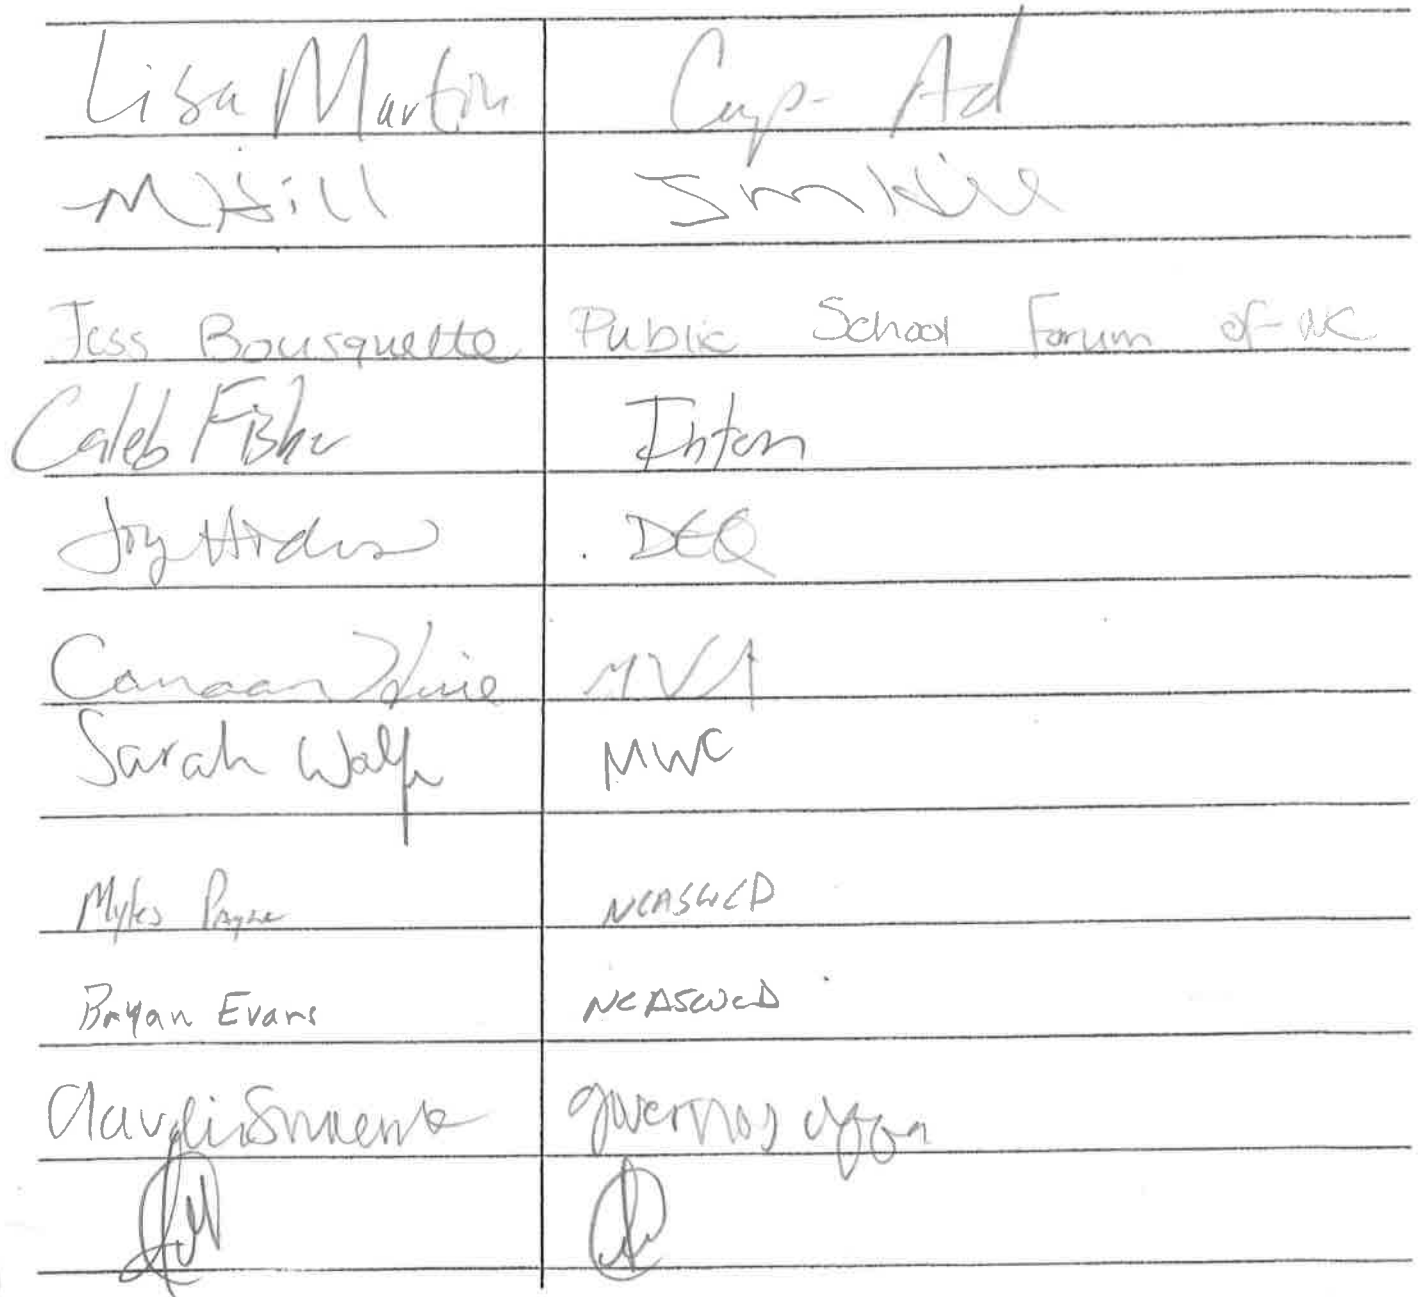 Lisa Martin Cap- Ad
M Hill
Jess Bousquette Public School Forum of NC
Caleb Fisher Intern
Joy Hicks DEQ
Canaan MVA
Sarah Wolfe MWC
Myles Payne NCASWCD
Bryan Evans NCASWCD
governors office